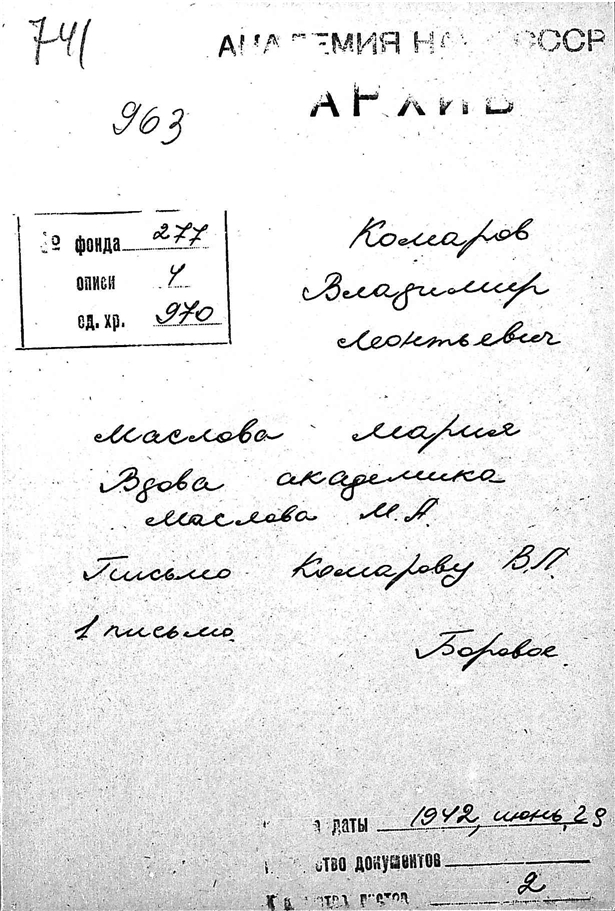 741
АКАДЕМИЯ НАУК СССР
АРХИВ
963
№ фонда 277
описи 4
ед. хр. 970
Комаров
Владимир
Леонтьевич
Маслова Мария
Вдова академика
Маслова М.А.
Письмо Комарову В.Л.
1 письмо.
Боровое.
даты 1942, июнь, 29
ство документов
2